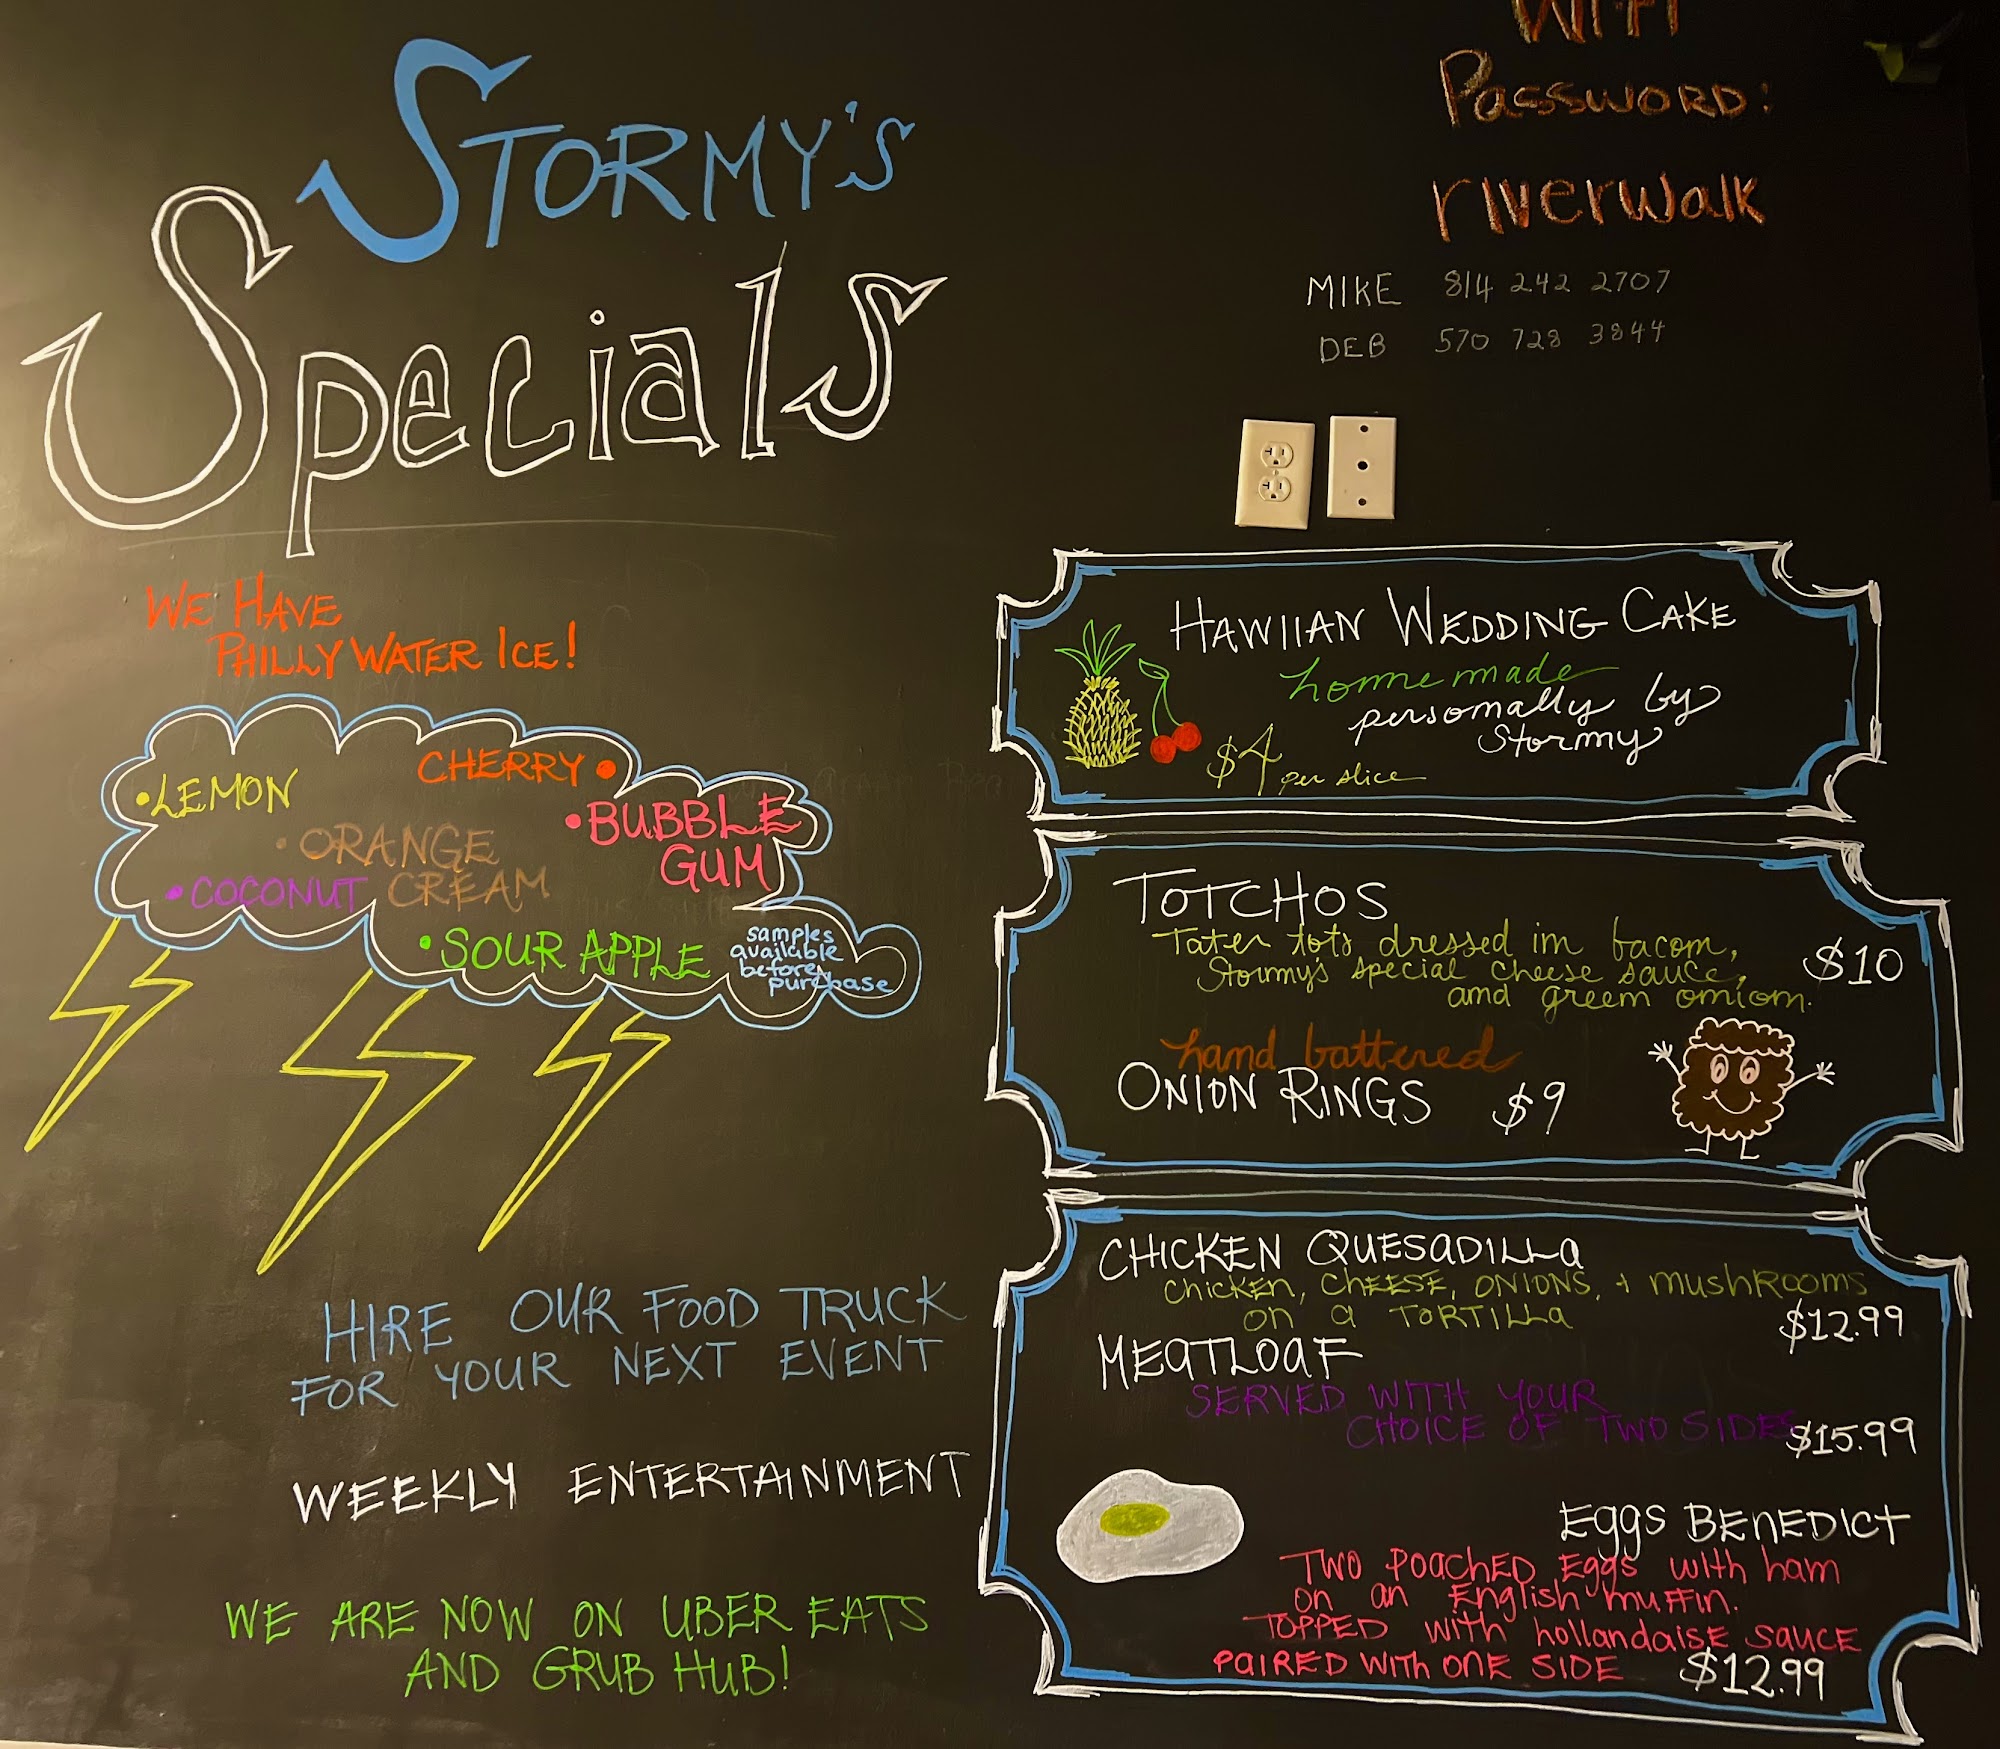 STORMY'S
Specials
WIFI
PASSWORD:
riverwalk
MIKE 814 242 2707
DEB 570 728 3844
WE HAVE
PHILLY WATER ICE!
• LEMON
CHERRY •
• BUBBLE
GUM
• ORANGE
CREAM
• COCONUT
• SOUR APPLE
samples
available
before
purchase
HIRE OUR FOOD TRUCK
FOR YOUR NEXT EVENT
WEEKLY ENTERTAINMENT
WE ARE NOW ON UBER EATS
AND GRUB HUB!
HAWIIAN WEDDING CAKE
homemade
personally by
Stormy
$4 per slice
TOTCHOS
Tater tots dressed in bacon,
Stormy's special cheese sauce,
and green onion.
$10
hand battered
ONION RINGS $9
CHICKEN QUESADILLA
CHICKEN, CHEESE, ONIONS, + MUSHROOMS
ON A TORTILLA
$12.99
MEATLOAF
SERVED WITH YOUR
CHOICE OF TWO SIDES
$15.99
Eggs BENEDICT
TWO POACHED Eggs with ham
on an English muffin.
TOPPED with hollandaise SAUCE
PAIRED WITH ONE SIDE $12.99